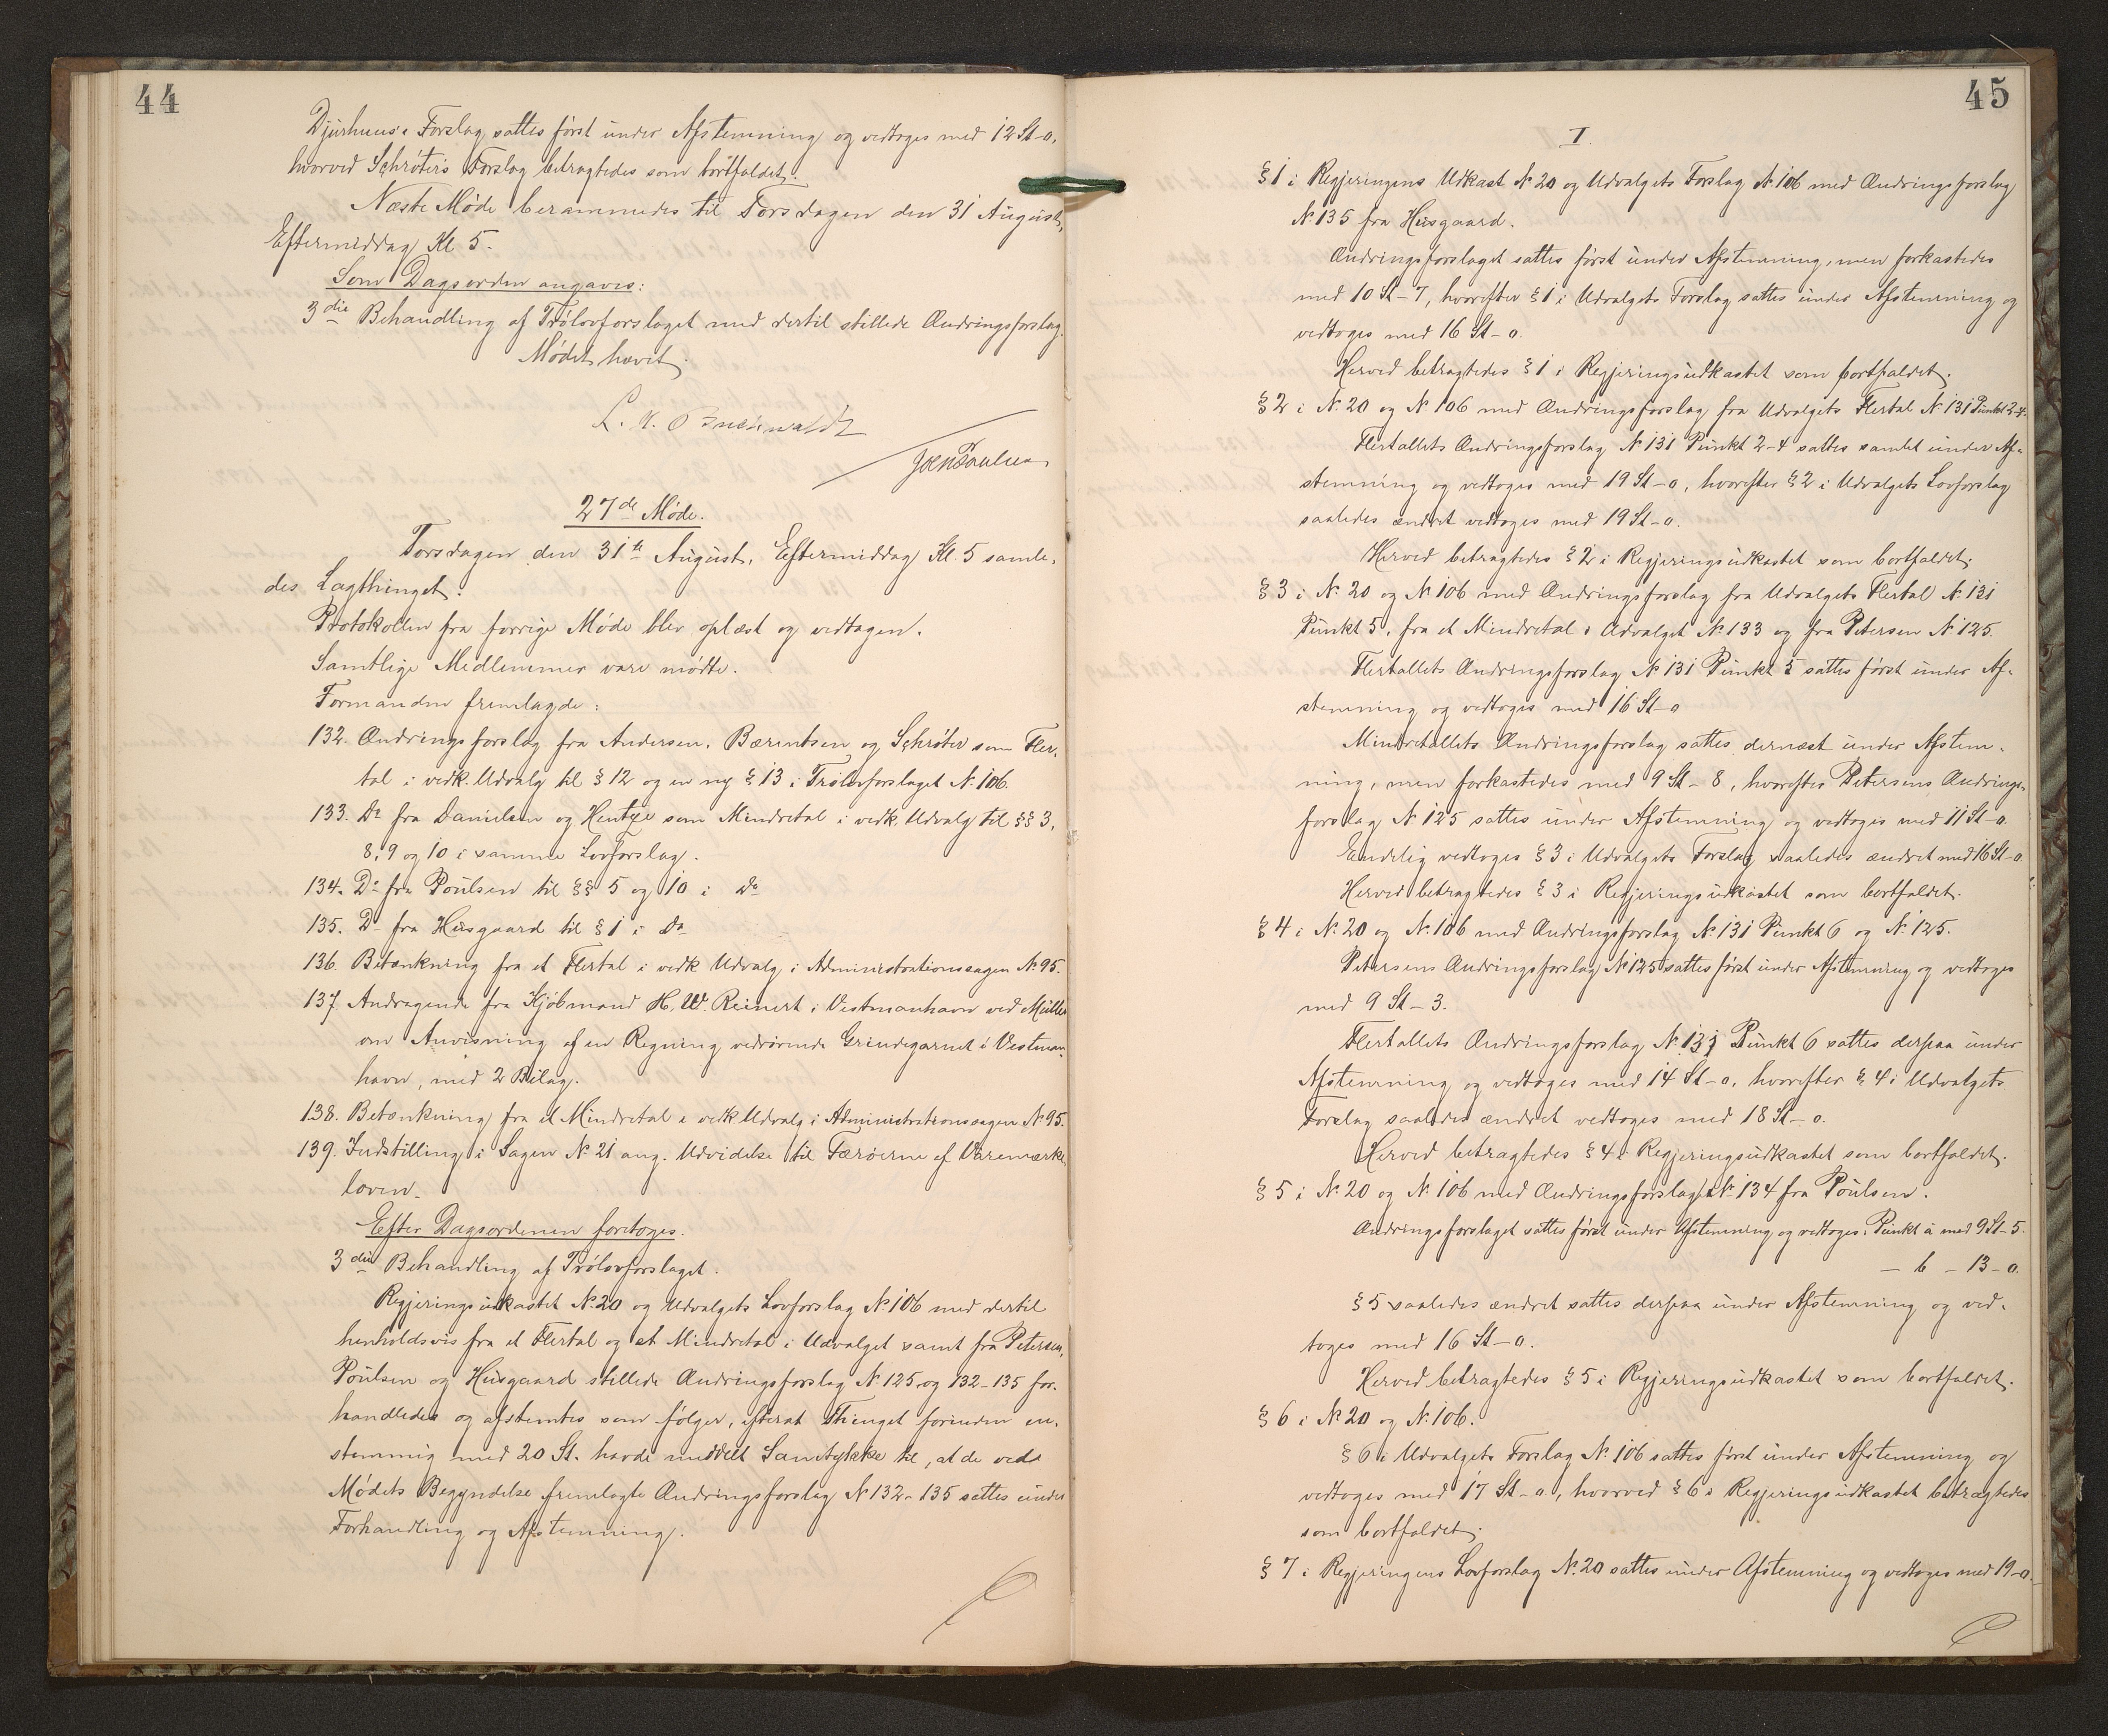 44
Djurhuus's Forslag sattes først under Afstemning og vedtoges med 12 St-0,
hvorved Schrøters Forslag betragtedes som bortfaldet.
Næste Møde berammedes til Torsdagen den 31 August,
Eftermiddag Kl 5.
Som Dagsorden angaves:
3die Behandling af Trølovforslaget med dertil stillede Ændringsforslag.
Mødet hævet.
27de Møde.
Torsdagen den 31te August, Eftermiddag Kl. 5 samle-
des Lagthinget.
Protokollen fra forrige Møde blev oplæst og vedtagen.
Samtlige Medlemmer vare mødte.
Formanden fremlagde:
132. Ændringsforslag fra Andersen, Bærentsen og Schrøter som Fler-
tal i vedk. Udvalg til § 12 og en ny § 13 i Trølovforslaget № 106.
133. Do fra Danielsen og Hentze som Mindretal i vedk. Udvalg til §§ 3,
8, 9 og 10 i samme Lovforslag.
134. Do fra Poulsen til §§ 5 og 10 i Do
135. Do fra Husgaard til § 1 i Do
136. Betænkning fra et Flertal i vedk Udvalg i Administrationssagen № 95.
137. Andragende fra Kjøbmand H. W. Reinert i Vestmanhavn ved Müller
om Anvisning af en Regning vedrørende Grindegarnet i Vestman-
havn, med 2 Bilag.
138. Betænkning fra et Mindretal i vedk Udvalg i Administrationssagen № 95.
139. Indstilling i Sagen № 21 ang. Udvidelse til Færøerne af Varemærke-
loven.
Efter Dagsordenen foretoges.
3die Behandling af Trølovforslaget.
Regjeringsudkastet № 20 og Udvalgets Lovforslag № 106 med dertil
henholdsvis fra et Flertal og et Mindretal i Udvalget samt fra Petersen,
Poulsen og Husgaard stillede Ændringsforslag № 125 og 132-135 for-
handledes og afstemtes som følger, efterat Thinget forinden en-
stemmig med 20 St. havde meddelt Samtykke til, at de ved
Mødets Begyndelse fremlagte Ændringsforslag № 132-135 sattes under
Forhandling og Afstemning.
45
I.
§ 1 i Regjeringens Udkast № 20 og Udvalgets Forslag № 106 med Ændringsforslag
№ 135 fra Husgaard.
Ændringsforslaget sattes først under Afstemning, men forkastedes
med 10 St-7, hvorefter § 1 i Udvalgets Forslag sattes under Afstemning og
vedtoges med 16 St-0.
Herved betragtedes § 1 i Regjeringsudkastet som bortfaldet.
§ 2 i № 20 og № 106 med Ændringsforslag fra Udvalgets Flertal № 131 Punkt 2-4.
Flertallets Ændringsforslag № 131 Punkt 2-4 sattes samlet under Af-
stemning og vedtoges med 19 St-0, hvorefter § 2 i Udvalgets Lovforslag
saaledes ændret vedtoges med 19 St-0.
Herved betragtedes § 2 i Regjeringsudkastet som bortfaldet.
§ 3 i № 20 og № 106 med Ændringsforslag fra Udvalgets Flertal № 131
Punkt 5, fra et Mindretal i Udvalget № 133 og fra Petersen № 125.
Flertallets Ændringsforslag № 131 Punkt 5 sattes først under Af-
stemning og vedtoges med 16 St-0
Mindretallets Ændringsforslag sattes dernæst under Afstem-
ning, men forkastedes med 9 St-8, hvorefter Petersens Ændrings-
forslag № 125 sattes under Afstemning og vedtoges med 11 St-0.
Endelig vedtoges § 3 i Udvalgets Forslag saaledes ændret med 16 St-0
Herved betragtedes § 3 i Regjeringsudkastet som bortfaldet.
§ 4 i № 20 og № 106 med Ændringsforslag № 131 Punkt 6 og № 125.
Petersens Ændringsforslag № 125 sattes først under Afstemning og vedtoges
med 9 St-3.
Flertallets Ændringsforslag № 131 Punkt 6 sattes derpaa under
Afstemning og vedtoges med 14 St-0, hvorefter § 4 i Udvalgets
Forslag saaledes ændret vedtoges med 18 St-0.
Herved betragtedes § 4 i Regjeringsudkastet som bortfaldet.
§ 5 i № 20 og № 106 med Ændringsforslag № 134 fra Poulsen.
Ændringsforslaget sattes først under Afstemning og vedtoges: Punkt a med 9 St-5.
— b - 13-0.
§ 5 saaledes ændret sattes derpaa under Afstemning og ved-
toges med 16 St-0.
Herved betragtedes § 5 i Regjeringsudkastet som bortfaldet.
§ 6 i № 20 og № 106.
§ 6 i Udvalgets Forslag № 106 sattes først under Afstemning og
vedtoges med 17 St-0, hvorved § 6 i Regjeringsudkastet betragtedes
som bortfaldet.
§ 7 i Regjeringens Lovforslag № 20 sattes under Afstemning og vedtoges med 19-0.